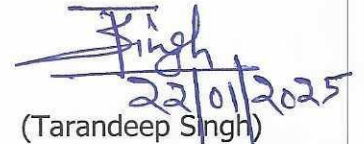 Singh
22/01/2025
(Tarandeep Singh)